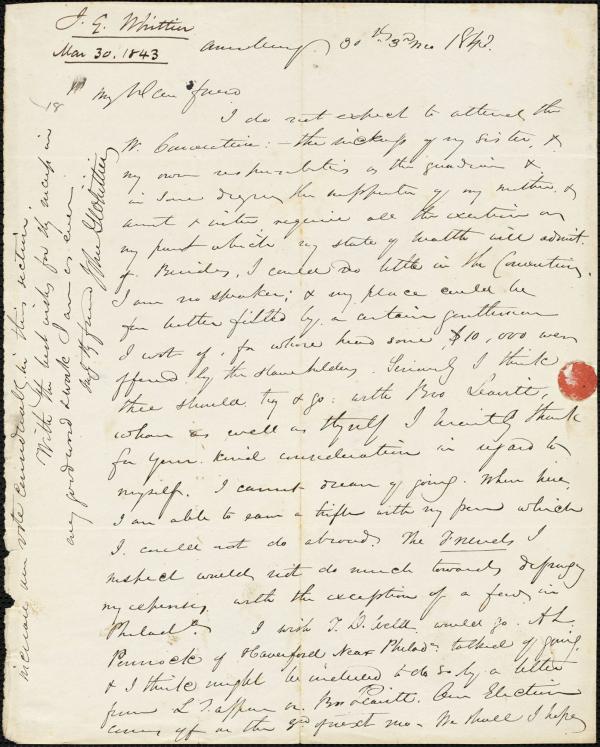 J. G. Whittier
Mar 30. 1843
Amesbury. 30th 3rd mo 1843.
18
My Dear friend
I do not expect to attend the
W. Convention: – the sickness of my sister, &
my own responsibilities as the guardian &
in some degree the supporter of my mother &
aunt & sister require all the exertion on
my part which my state of health will admit
of. Besides, I could do little in the Convention.
I am no speaker; & my place could be
far better filled by a certain gentleman
I wot of, for whose head some $10,000 were
offered by the slaveholders. Seriously I think
thee should try & go: with Bro Leavitt,
whom as well as thyself I heartily thank
for your kind consideration in regard to
myself. I cannot dream of going. When here,
I am able to earn a trifle with my pen which
I could not do abroad. The Friends I
suspect would not do much towards defraying
my expenses, with the exception of a few in
Philada. I wish T. D. Weld would go. A L.
Pennock of Haverford near Philada talked of going
& I think might be induced to do so by a letter
from L Tappan or Bro Leavitt. Our Election
comes off on the 3rd of next mo – We shall I hope
increase our vote considerably in this section.
With the best wishes for thy success in
every good word & work I am as ever
thy friend John G Whittier